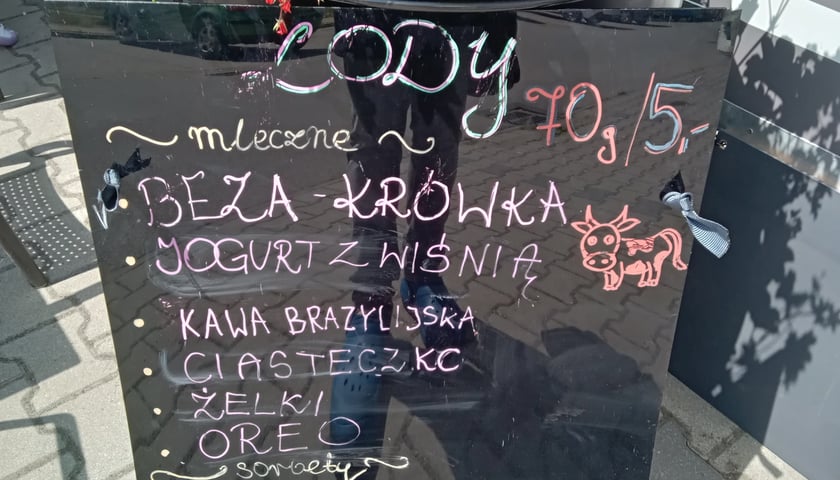 LODY
70g/5,-
~ mleczne ~
BEZA-KRÓWKA
JOGURT Z WIŚNIĄ
KAWA BRAZYLIJSKA
CIASTECZKO
ŻELKI
OREO
~ sorbety ~